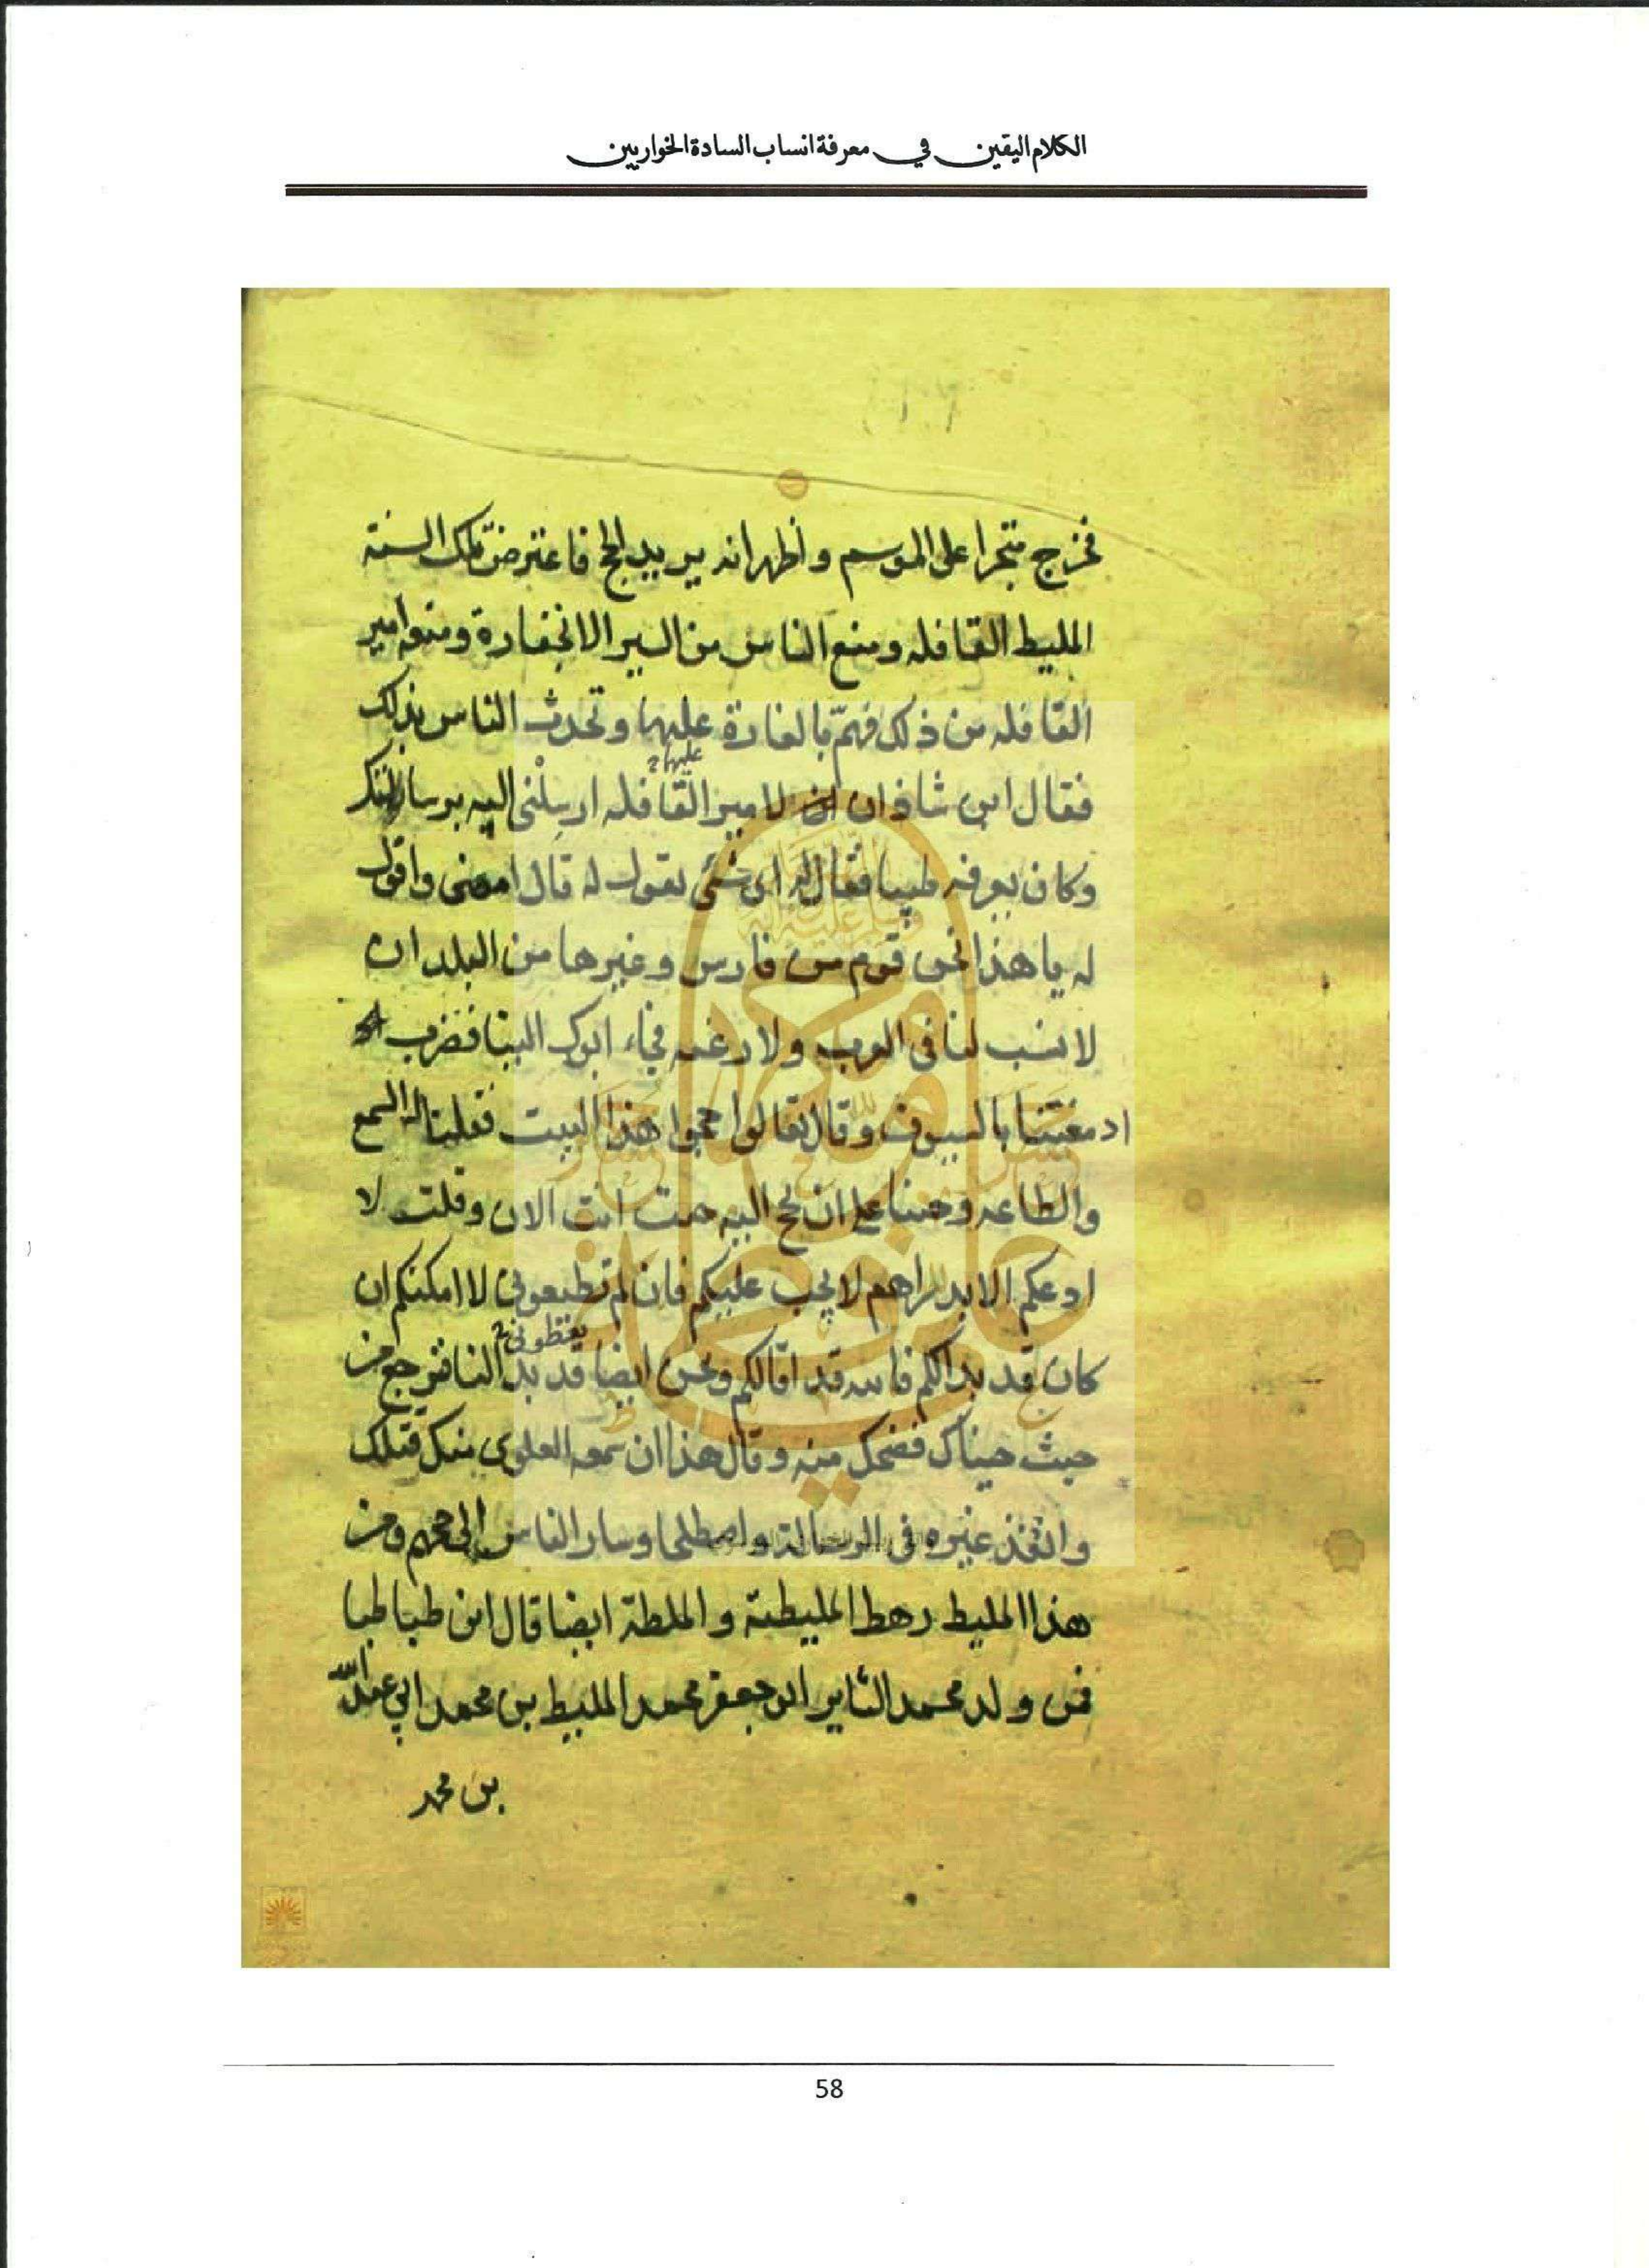 الكلام اليقين في معرفة انساب السادة الخواريين
فخرج متجرا على الموسم و أظهر انه يريد الحج فاعترض تلك السنة
المليط القافله ومنع الناس من السير الا بخفارة ومنعه امير
القافله من ذلك فهمّ بالغارة عليها وتحدث الناس بذلك
عليها
فقال ابن شاذان لامير القافله ارسلنى اليه برسالتك
وكان يعرفه طيبا فقال له اى شئى تقول له قال امضى واقول
له يا هذا نحن قوم من فارس وغيرها من البلدان
لا نسب لنا فى العرب ولا رغبه فجاء ابوك الينا فضرب
ادمغتنا بالسيوف وقال تعالوا حجوا هذا البيت فقلنا له السمع
والطاعه وجئنا على ان نحج اليه جئت انت الان وقلت لا
ادعكم الا بدراهم لا يجب عليكم فان لم تطيعونى لا امكنكم ان
تعطونى
كان قد بدالكم فالله قد اقالكم ونحن ايضا قد بدا لنا فنرجع من
حيث جيناك فضحك منه وقال هذا ان سمعه العلوى منك قتلك
وانفذ غيره فى الرسالة واصطلحا وسار الناس الى حجهم ومن
هذا المليط رهط المليطية و الملطة ايضا قال ابن طباطبا
فمن ولد محمد الثاير ابو جعفر محمد المليط بن محمد ابي عبد الله
بن محمد
58